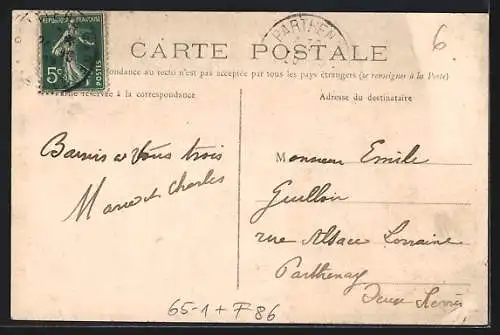 REPUBLIQUE FRANÇAISE
5c
POSTES
PARTHEN
6
CARTE POSTALE
pondance au recto n'est pas acceptée par tous les pays étrangers (se renseigner à la Poste)
réservée à la correspondance
Adresse du destinataire
à Vous trois
Marie et Charles
Monsieur Emile
rue Alsace Lorraine
Parthenay
Deux Sèvres
65-1 + F 86